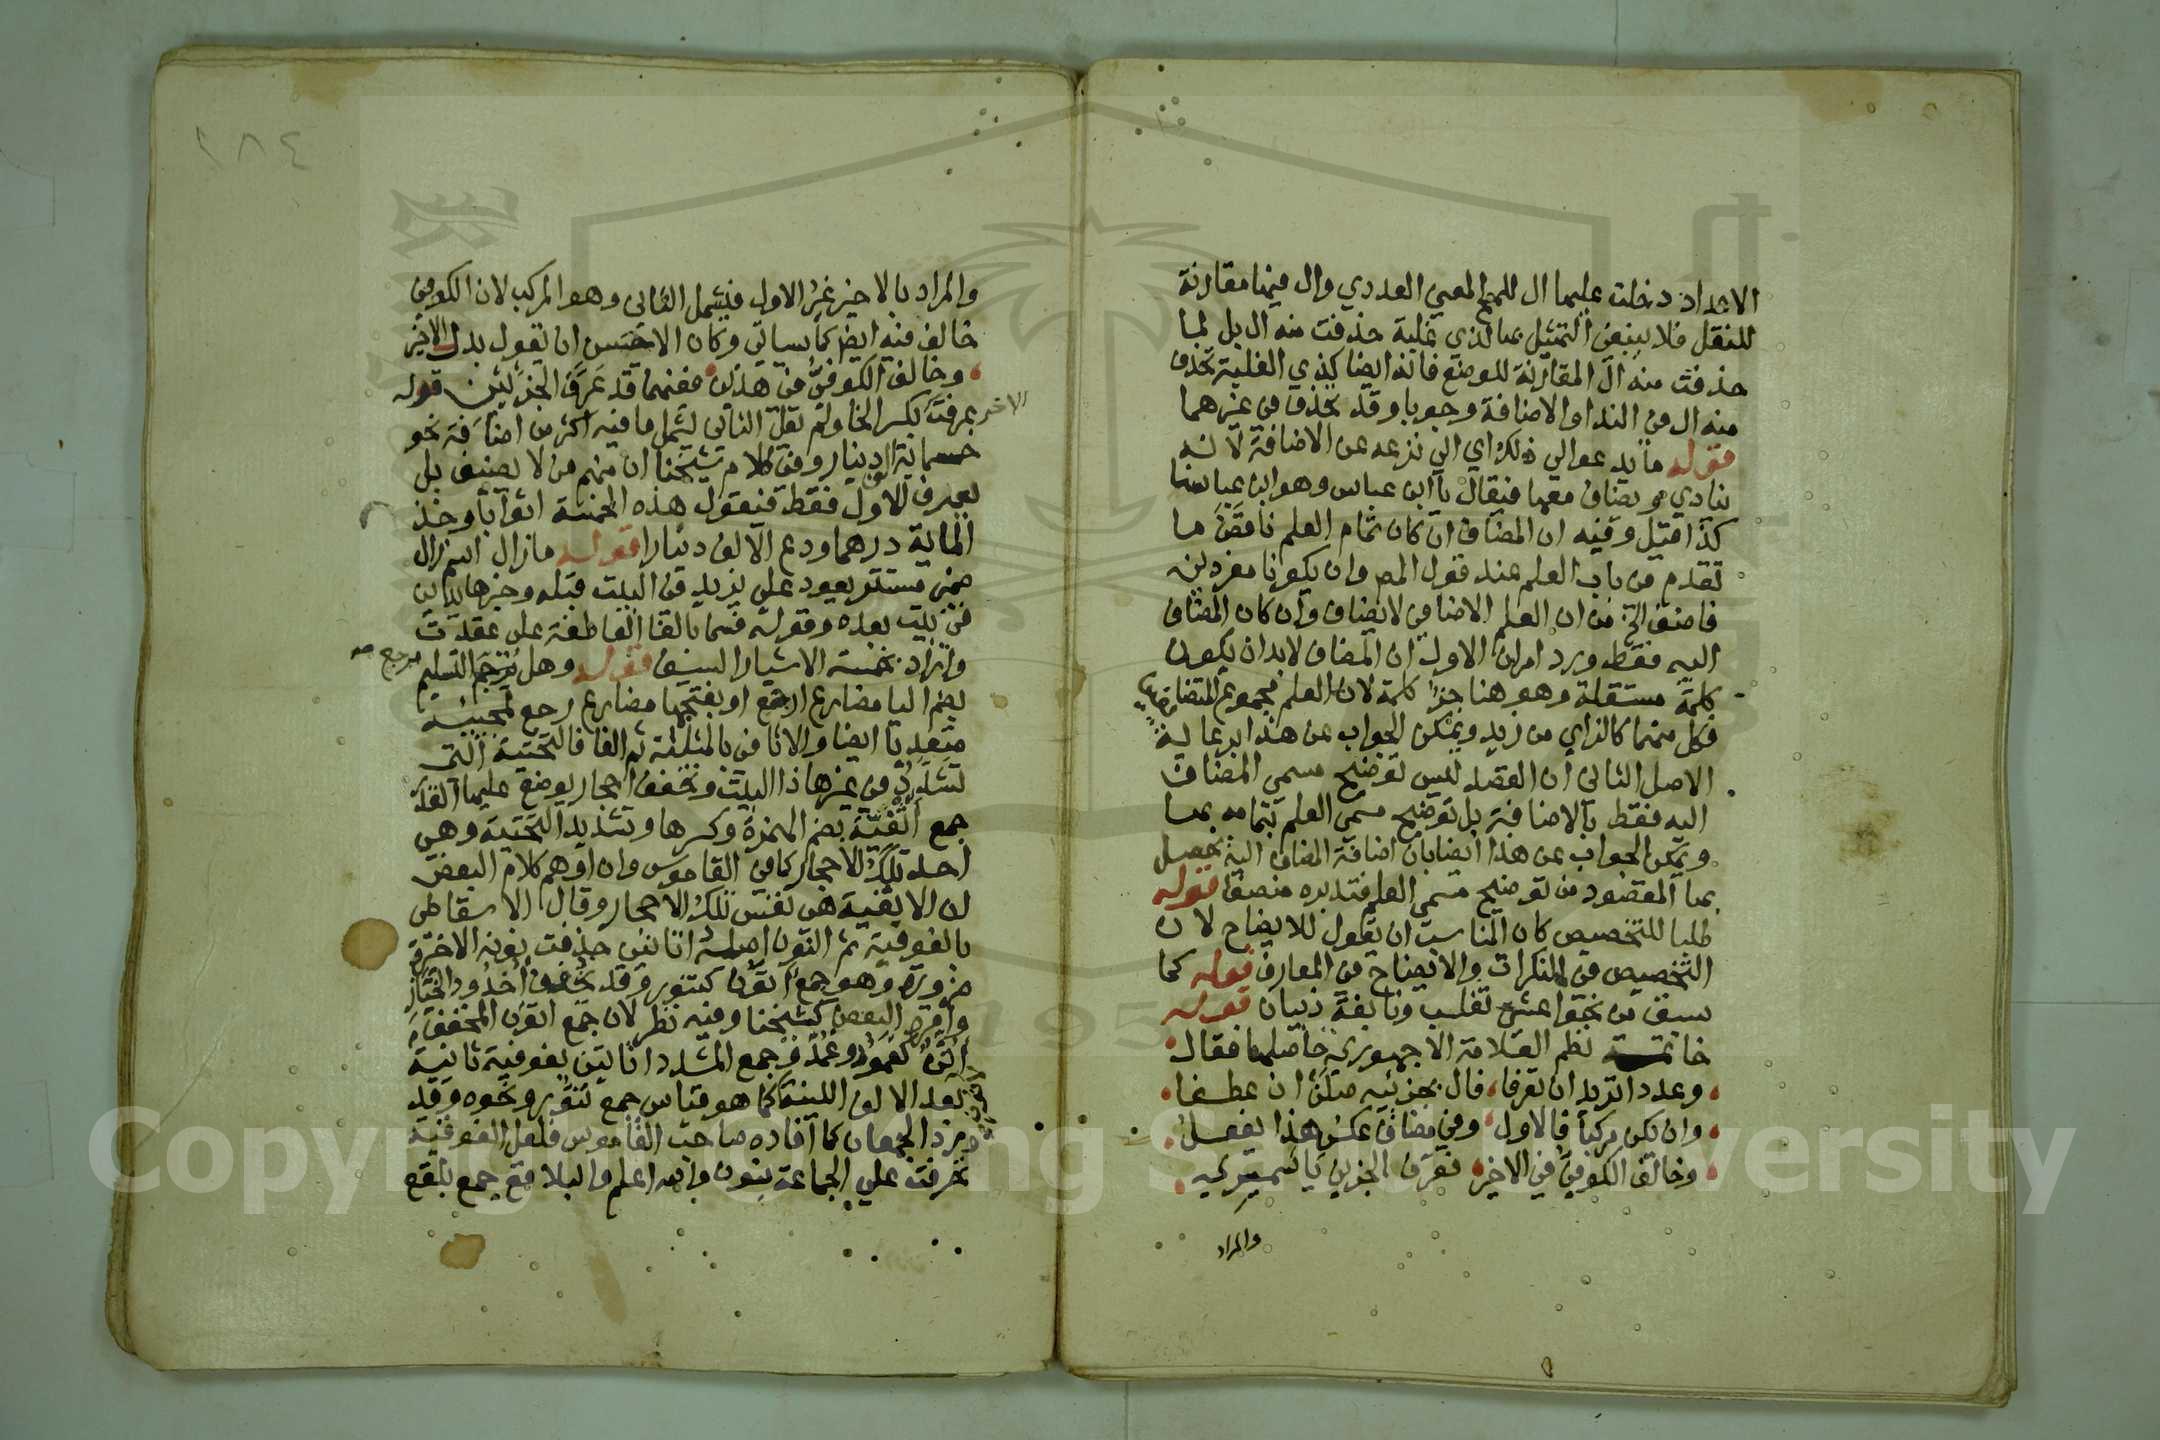 الاعداد دخلت عليها ال للمح المعني العددي وال فيها مقارنة
للنقل فلا ينبغي التمثيل بها لذي غلبة حذفت منه ال بل لما
حذفت منه ال المقارنة للوضع فانه ايضا كذي الغلبة تحذف
منه ال في الندا والاضافة وجوبا وقد تحذف في غيرهما
قوله ما يدعو الي ذلك اي الي نزعه عن الاضافة لانه
ينادي ويضاف معها فيقال يا ابن عباس وهو ابن عباسنا
كذا قيل وفيه ان المضاف ان كان تمام العلم ناقض ما
تقدم في باب العلم عند قول المص وان يكونا مفردين
فاضف الخ من ان العلم الاضافي لا يضاف وان كان المضاف
اليه فقط ورد امران الاول ان المضاف لابد ان يكون
كلمة مستقلة وهو هنا جزا كلمة لان العلم مجموع المتضايفين
فكل منهما كالزاي من زيد ويمكن الجواب عن هذا برعاية
الاصل الثاني ان القصد ليس توضيح مسمي المضاف
اليه فقط بالاضافة بل توضيح مسمي العلم بتمامه بها
ويمكن الجواب عن هذا ايضا بان اضافة المضاف اليه يحصل
بها المقصود من توضيح مسمي العلم فتدبره منصفا قوله
طلبا للتخصيص كان المناسب ان يقول للايضاح لان
التخصيص في النكرات والايضاح في المعارف قوله كما
سبق من نحو اعشي تغلب ونابغة ذبيان قوله
خاتمة نظم العلامة الاجهوري حاصلها فقال
وعددا تريد ان تعرفا، فال بجزئيه صلن ان عطفا
وان يكن مركبا فالاول، وفي مضاف عكس هذا يفعل
وخالف الكوفي في الاخير فعرف الجزين يا سميري
والمراد
١٨٤
والمراد بالاخير غير الاول فيشمل الثاني وهو المركب لان الكوفي
خالف فيه ايضا كما سياتي وكان الاحسن ان يقول بدل الاخير
وخالف الكوفي في هذين ففيهما قد عرف الجزئين قوله
الاخر
بعرفت بكسر الخا ولم يقل الثاني ليشمل ما فيه اكثر من اضافة نحو
خمسماية الف دينار وفي كلام شيخنا ان منهم من لا يضيف بل
يعرف الاول فقط فيقول هذه الخمسة اثوابا وخذ
الماية درهما ودع الالف دينارا قوله مازال اسم زال
ضمير مستتر يعود علي يزيد في البيت قبله وخبرها يدني
في بيت بعده وقوله فسما بالفا العاطفة علي عقدت
واراد بخمسة الاشبار السيف قوله وهل يرجع التسليم
يرجع صح
بضم اليا مضارع ارجع او بفتحها مضارع رجع لمجيئه
متعديا ايضا والاثافي بالمثلثة ثم الفا فالتحتية التي
تشدد في غير هذا البيت وتخفف احجار يوضع عليها القدر
جمع اثفية بضم الهمزة وكسرها وتشديد التحتية وهي
احد تلك الاحجار كما في القاموس وان اوهم كلام البعض
ان الاثفية هي نفس تلك الاحجار وقال الاسقاطي
بالفوقية ثم النون اصله اتانين حذفت نونه الاخيرة
ضرورة وهو جمع اتون كتنور وقد يخفف اخدود الخباز
واقره البعض كشيخنا وفيه نظر لان جمع اتون المخفف
اتن كعمود وعمد وجمع المشدد اتاتين بفوقية ثانية
بعد الالف اللينة كما هو قياس جمع تنور ونحوه وقد
ورد الجمعان كما افاده صاحب القاموس فلعل الفوقية
تحرفت علي الجماعة بنون والله اعلم والبلاقع جمع بلقع